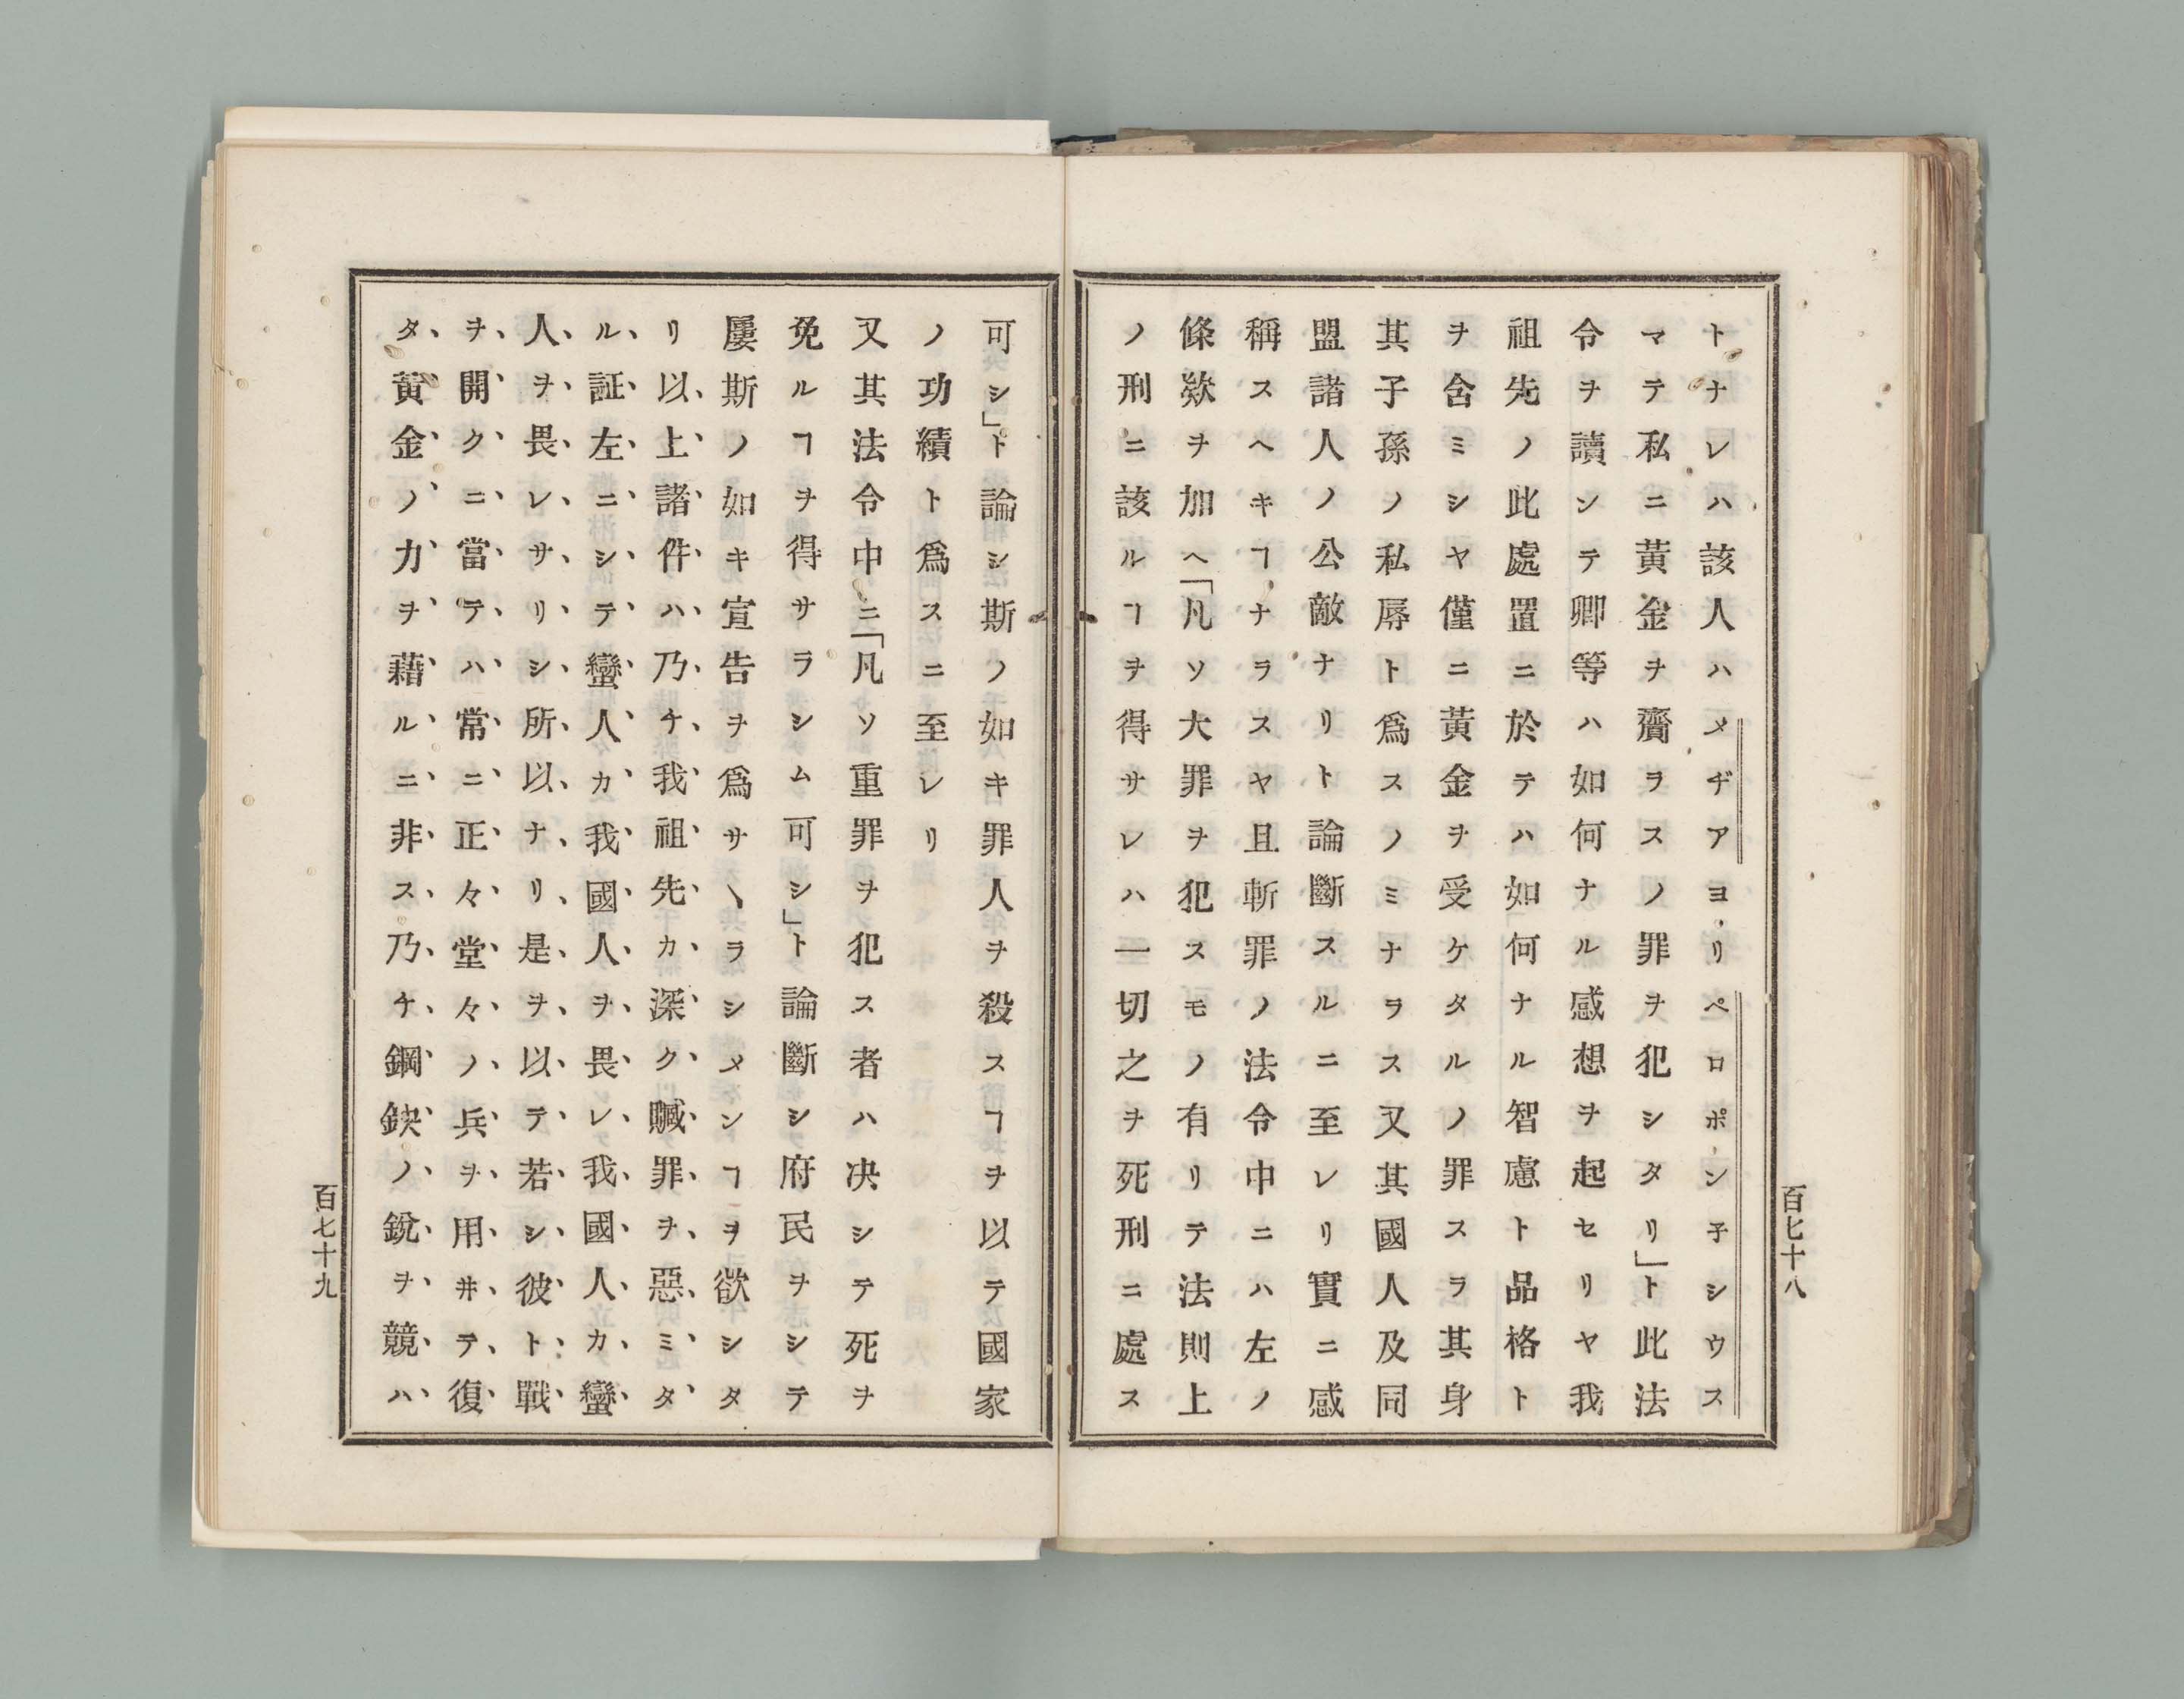 トナレハ該人ハメヂアヨリペロポン子シウス
マテ私ニ黄金ヲ齎ラスノ罪ヲ犯シタリ」ト此法
令ヲ讀ンテ卿等ハ如何ナル感想ヲ起セリヤ我
祖先ノ此處置ニ於テハ如何ナル智慮ト品格ト
ヲ含ミシヤ僅ニ黄金ヲ受ケタルノ罪スラ其身
其子孫ノ私辱ト爲スノミナラス又其國人及同
盟諸人ノ公敵ナリト論斷スルニ至レリ實ニ感
稱スヘキヿナラスヤ且斬罪ノ法令中ニハ左ノ
條欵ヲ加ヘ「凡ソ大罪ヲ犯スモノ有リテ法則上
ノ刑ニ該ルヿヲ得サレハ一切之ヲ死刑ニ處ス
百七十八
可シ」ト論シ斯ノ如キ罪人ヲ殺スヿヲ以テ國家
ノ功績ト爲スニ至レリ
又其法令中ニ「凡ソ重罪ヲ犯ス者ハ决シテ死ヲ
免ルヿヲ得サラシム可シ」ト論斷シ府民ヲシテ
屢斯ノ如キ宣告ヲ爲サヽラシメンヿヲ欲シタ
リ以上諸件ハ乃チ我祖先カ深ク贓罪ヲ惡ミタ
ル証左ニシテ蠻人カ我國人ヲ畏レ我國人カ蠻
人ヲ畏レサリシ所以ナリ是ヲ以テ若シ彼ト戰
ヲ開クニ當テハ常ニ正々堂々ノ兵ヲ用井テ復
タ黄金ノ力ヲ藉ルニ非ス乃チ鋼鉄ノ銳ヲ競ハ
百七十九